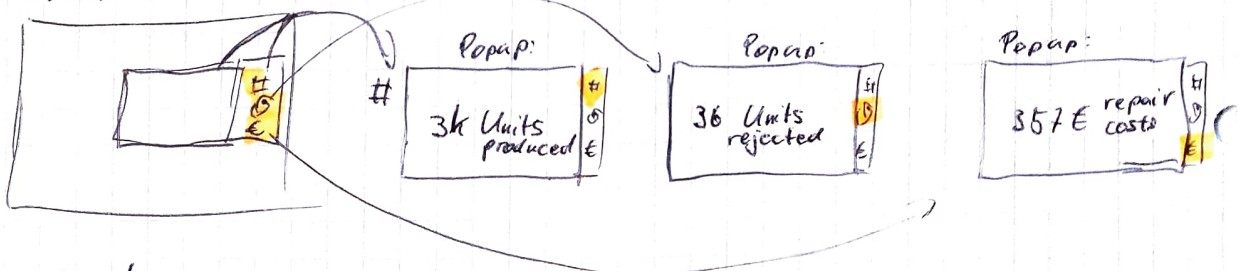 #
€
#
Popup:
#
€
3k Units
produced
Popup:
#
€
36 Units
rejected
Popup:
#
€
357€ repair
costs